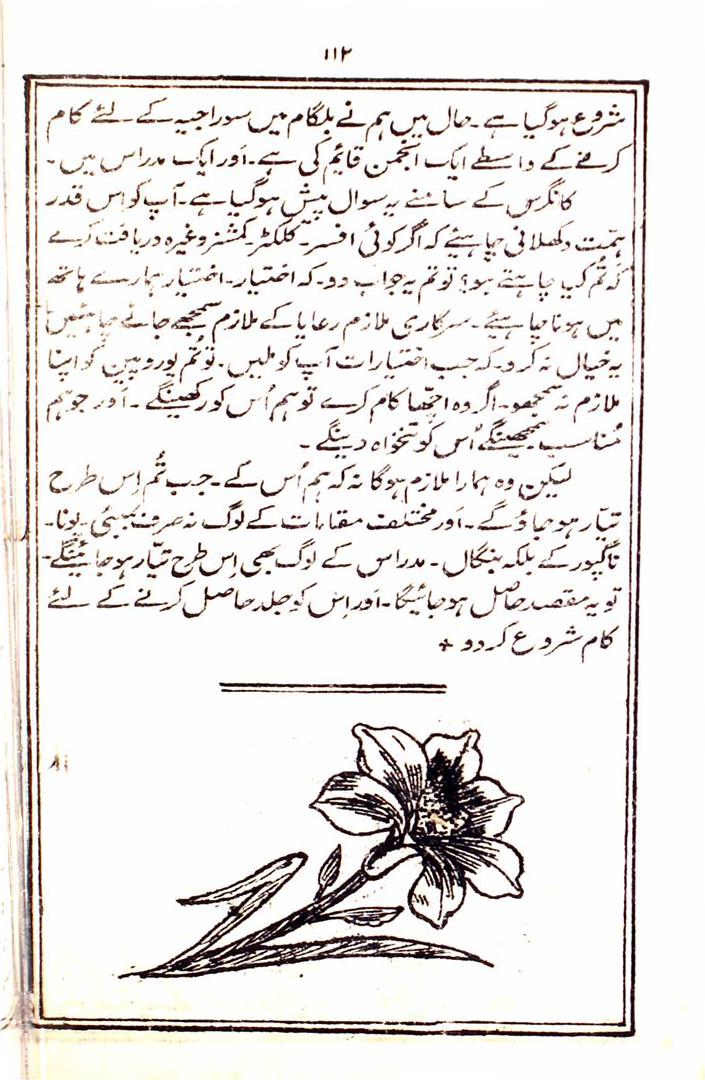 ۱۱۲
شروع ہوگیا ہے۔ حال میں ہم نے بلگام میں سوراجیہ کے لئے کام
کرنے کے واسطے ایک انجمن قایم کی ہے۔ اور ایک مدراس میں۔
کانگرس کے سامنے یہ سوال پیش ہوگیا ہے۔ آپ کو اس قدر
ہمّت دکھلانی چاہیئے کہ اگر کوئی افسر۔ کلکٹر۔ کمشنر وغیرہ دریافت کرے
کہ تُم کیا چاہتے ہو؟ تو تم یہ جواب دو۔ کہ اختیار۔ اختیار ہمارے ہاتھ
میں ہونا چاہیئے۔ سرکاری ملازم رعایا کے ملازم سمجھے جانے چاہئیں
یہ خیال نہ کرو۔ کہ جب اختیارات آپ کو ملیں۔ تو تُم یوروپین کو اپنا
ملازم نہ سمجھو۔ اگر وہ اچھّا کام کرے تو ہم اُس کو رکھینگے۔ اور جو ہم
مُناسب سمجھینگے اُس کو تنخواہ دینگے۔
لیکن وہ ہمارا ملازم ہوگا نہ کہ ہم اُس کے۔ جب تُم اِس طرح
تیّار ہو جاؤ گے۔ اور مختلف مقامات کے لوگ نہ صرف بمبئی۔ پونا۔
ناگپور کے بلکہ بنگال۔ مدراس کے لوگ بھی اِس طرح تیّار ہو جائینگے۔
تو یہ مقصد حاصل ہو جائیگا۔ اور اِس کو جلد حاصل کرنے کے لئے
کام شروع کر دو +